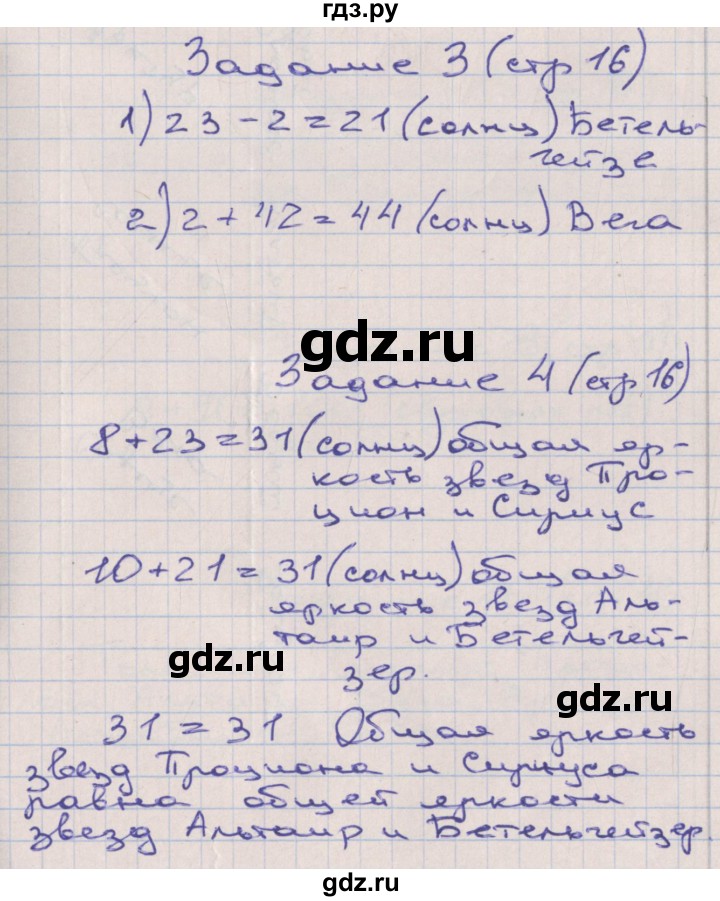 гдз.ру
Задание 3 (стр 16)
1) 23 - 2 = 21 (солнц) Бетель-
гейзе
2) 2 + 42 = 44 (солнц) Вега
gdz.ru
Задание 4 (стр 16)
8 + 23 = 31 (солнц) общая яр-
кость звезд Про-
цион и Сириус
10 + 21 = 31 (солнц) общая
яркость звезд Аль-
таир и Бетельгей-
gdz.ru
зер.
gdz.ru
31 = 31 Общая яркость
звезд Проциона и Сириуса
равна общей яркости
звезд Альтаир и Бетельгейзер.
gdz.ru